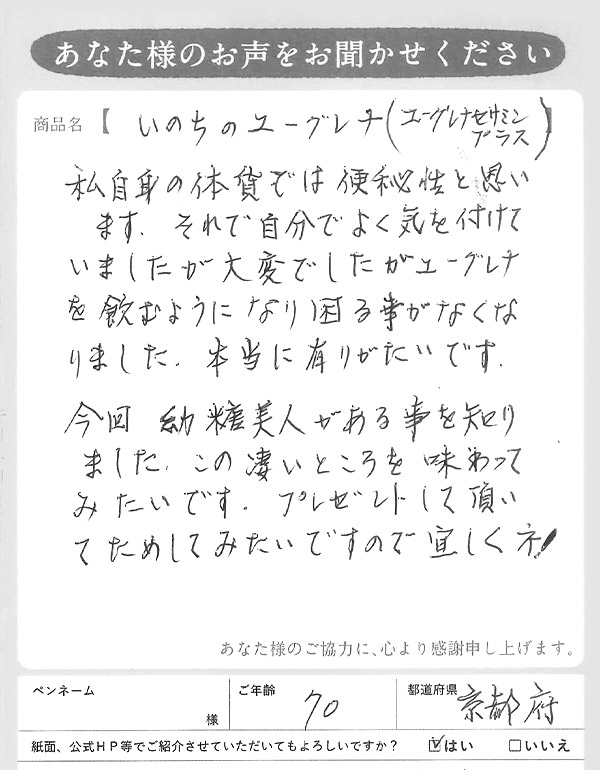 あなた様のお声をお聞かせください
商品名【 いのちのユーグレナ(ユーグレナセサミンプラス) 】
私自身の体質では便秘性と思い
ます. それで自分でよく気を付けて
いましたが大変でしたがユーグレナ
を飲むようになり困る事がなくな
りました. 本当に有りがたいです.
今回 幼糖美人がある事を知り
ました. この凄いところを味わって
みたいです. プレゼントして頂い
てためしてみたいですので宜しくネ!
あなた様のご協力に、心より感謝申し上げます。
ペンネーム 様 ご年齢 70 都道府県 京都府
紙面、公式HP等でご紹介させていただいてもよろしいですか? ☑はい □いいえ